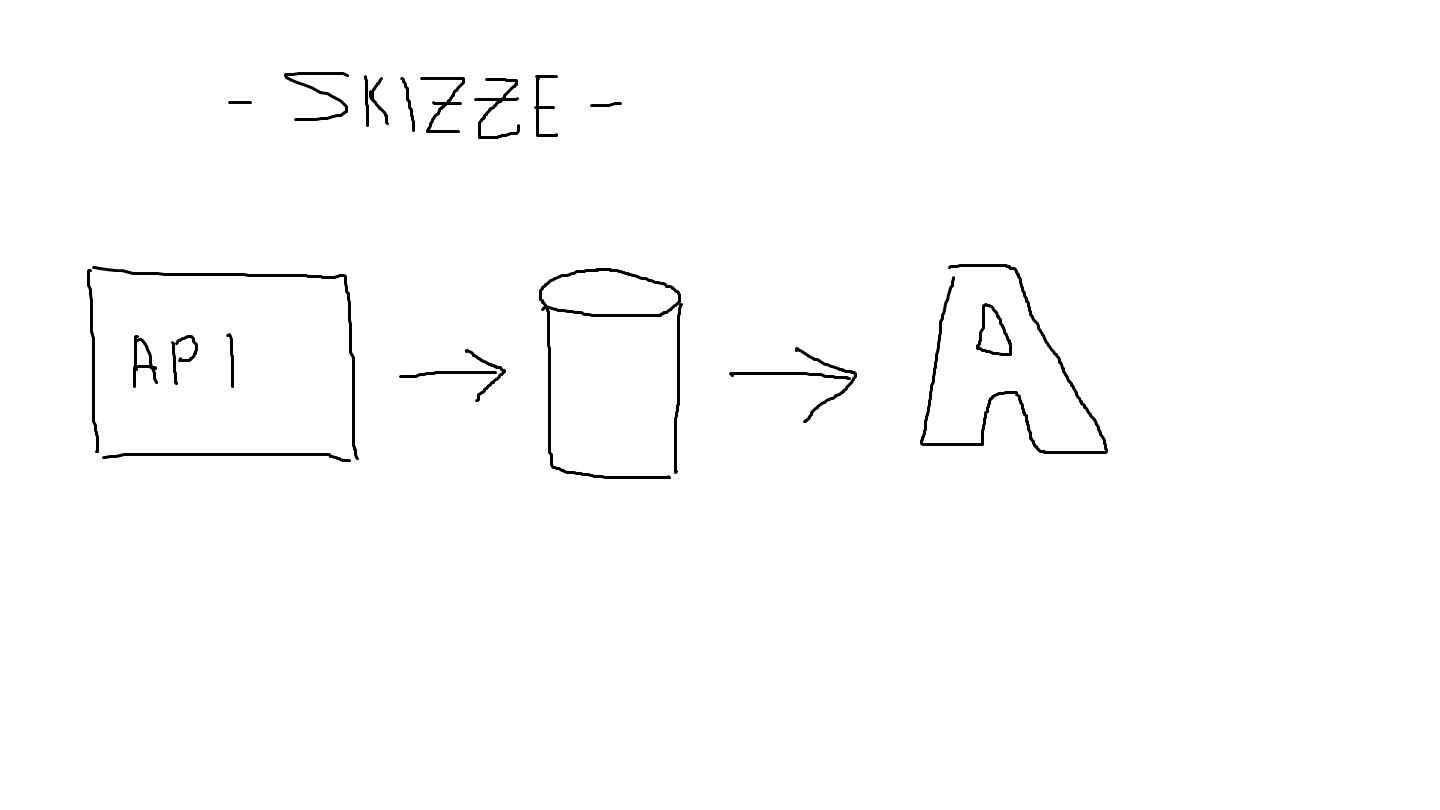 - SKIZZE -
API
A